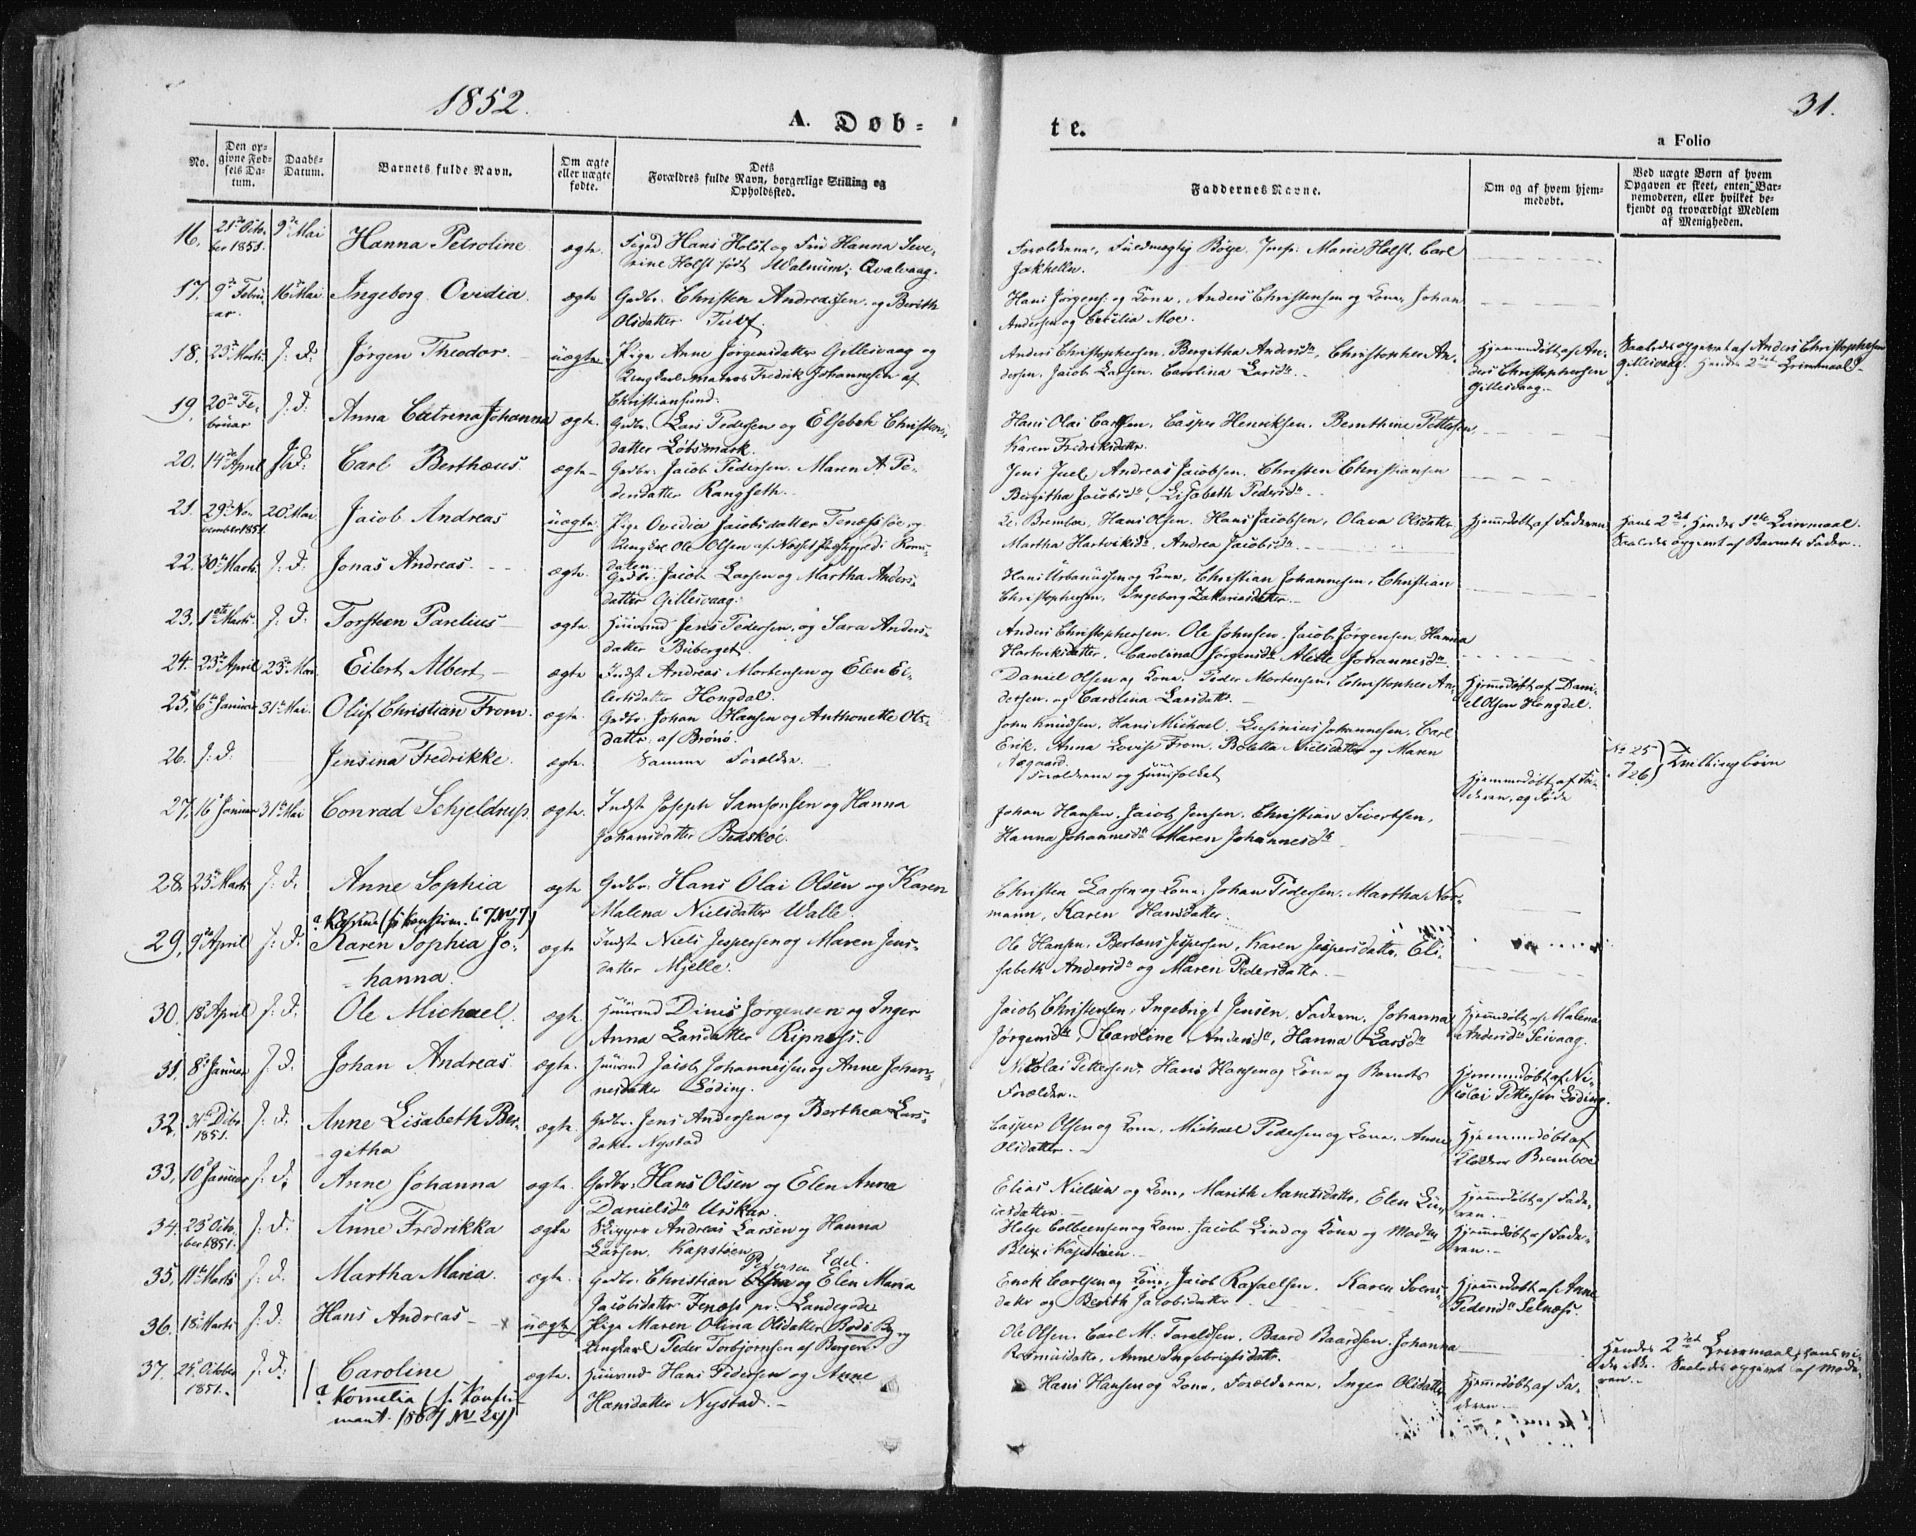 1852.
A. Døb-
te.
31.
a Folio
No.
Den op-
givne Fød-
sels Da-
tum.
Daabs-
Datum.
Barnets fulde Navn.
Om ægte
eller uægte
fødte.
Dets
Forældres fulde Navn, borgerlige Stilling og
Opholdssted.
Faddernes Navne.
Om og af hvem hjem-
medøbt.
Ved uægte Børn af hvem
Opgaven er skeet, enten Bar-
nemoderen, eller hvilket be-
kjendt og troværdigt Medlem
af Menigheden.
16. 21de Octo- 9de Mai Hanna Petroline ægte. Hans Holst og Hanna Seve-
ber 1851. rine Holst født Walnum, Qvalvaag.
Forældrene, Marie Holst, Carl
Jakhelln.
17. 9de Febru- 16de Mai Ingeborg Ovidia. ægte Gdbr. Christen Andreassen og Berith
ar. Olsdatter
Hans Jørgens. og Kone, Anders Christensen og Kone, Johan
Andersen og Cecilia Moe.
18. 23de Marts J. D. Jørgen Theodor. uægte Pige Anne Jørgensdatter Gillesvaag og
Ungkarl Matros Fredrik Johannesen af
Christiansund.
Anders Christophersen, Bergitha Andersdr, Christopher An-
dersen, Jacob Larsen, Carolina Larsdr.
Hjemmedøbt af An-
ders Christophersen
Gillesvaag.
Saaledes opgivet af Anders Christophersen
Gillesvaag. Hendes 2det Leiermaal.
19. 20de Fe- J. D. Anna Catrina Johanna ægte. Gdbr. Lars Pedersen og Elsebeh Christens-
bruar datter Løbsmark.
Hans Olai Carlsen, Casper Henriksen, Bernthine Pettersen,
Karen Fredriksdatter.
20. 14de April J. D. Carl Berthæus. ægte Gdbr. Jacob Pedersen, Maren A. Pe-
dersdatter Rangseth.
Jens Juel, Andreas Jacobsen, Christen Christiansen
Bergitha Jacobsdr, Lisabeth Pedersdr.
21. 29de No- 20de Mai Jacob Andreas uægte Pige Ovidia Jacobsdatter og
vember 1851. Ungkarl Ole Olsen af Næsset Præstegjeld i Roms-
dalen.
Bremboe, Hans Olsen, Hans Jacobsen, Olava Olsdatter
Martha Hartviksdr, Andrea Jacobsdr.
Hjemmedøbt af Faderen.
Hans 2det, Hendes 1ste Leiermaal.
Saaledes opgivet af Barnets Fader.
22. 30te Marts J. D. Jonas Andreas. ægte. Gdbr. Jacob Larsen og Martha Anders-
datter Gillesvaag.
Hans Urbanussen og Kone, Christian Johannesen, Christian
Christophersen, Ingeborg Zakariasdatter.
23. 1ste Marts J. D. Torsteen Parelius ægte Huusmd Jens Pedersen og Sara Anders-
datter Buberget.
Anders Christophersen, Ole Johnsen, Jacob Jørgensen, Hanna
Hartviksdatter, Carolina Jørgensdr, Alette Johannesdr.
24. 23de April 23de Mai Eilert Albert ægte Indst Andreas Mortensen og Elen Ei-
lertsdatter Hongdal.
Daniel Olsen og Kone, Peder Mortensen, Christopher An-
dersen og Carolina Larsdatter.
Hjemmedøbt af Dani-
el Olsen Hongdal.
25. 6te Januar 31te Mai. Oluf Christian From. ægte. Gdbr. Johan Hansen og Anthonette Ols-
datter af Brønø.
John Knudsen, Hans Michael, Johannesen, Carl
Erik, Anna Lovise From, Boletta Nielsdatter og Maren
Aagaard.
26. J. D. Jensina Fredrikke. ægte. Samme Forældre.
Forældrene og Huusfolket
Hjemmedøbt af Fa-
deren, og døde
No 25
& 26) Tvillingbørn
27. 16de Januar 31te Mai Conrad Schjeldrup. ægte. Indst Joseph Samsonsen og Hanna
Johansdatter Bredskoe.
Johan Hansen, Jacob Jensen, Christian Sivertsen,
Hanna Johannesdr Maren Johannesdr
28. 25de Marts J. D. Anne Sophia ægte Gdbr. Hans Olai Olsen og Karen
Malena Nielsdatter Walle.
Christen Larsen og Kone, Johan Pedersen, Martha Nor-
mann, Karen Hansdatter.
29. 9de April J. D. Karen Sophia Jo-
hanna. ægte Indst Niels Jespersen og Maren Jens-
datter Mjelle.
Ole Hansen, Bertæus Jespersen, Karen Jespersdatter, Eli-
sabeth Andersdr og Maren Pedersdatter.
30. 18de April J. D. Ole Michael. ægte. Huusmd Dines Jørgensen og Inger
Anna Larsdatter Ripnæss.
Jacob Christensen, Ingebrigt Jensen, Faderen, Johanna
Jørgensdr, Caroline Andersdr, Hanna Larsdr
Hjemmedøbt af Malena
Andersdr Seivaag.
31. 8de Januar J. D. Johan Andreas. ægte. Huusmd Jacob Johannessen og Anne Johan-
nesdatter Løding.
Nikolai Pettersen, Hans Hansen og Kone og Barnets
Forældre.
Hjemmedøbt af Ni-
colai Pettersen Løding.
32. 31te Debr J. D. Anne Lisabeth Ber-
1851. githa ægte. Gdbr. Jens Andersen og Berthea Lars-
datter Nystad
Casper Olsen og Kone, Michael Pedersen og Kone, Anne
Olsdatter.
Hjemmedøbt af
Bremboe
33. 10de Januar J. D. Anne Johanna ægte. Gdbr. Hans Olsen og Elen Anna
Danielsdr Urskar.
Elias Nielsen og Kone, Marith Aanetsdatter, Elen
Hjemmedøbt af Fade-
ren.
34. 23de Octo- J. D. Anne Fredrikka ægte Skipper Andreas Larsen og Hanna
ber 1851. Larsen, Kapstøen
Helge Colbeensen og Kone, Jacob Lind og Kone og Madm
Blix i Kapstøen.
Hjemmedøbt af Fade-
ren.
35. 11te Marts J. D. Martha Maria. ægte. Gdbr. Christian Olsen Petersen og Elen Maria Edel.
Jacobsdatter Fenæss pr. Landegode
Enok Carlsen og Kone, Jacob Rafaelsen, Karen Sørens-
datter og Berith Jacobsdatter.
Hjemmedøbt af Anne
Pedersdr Selnæss.
36. 18de Marts J. D. Hans Andreas uægte Pige Maren Olina Olsdatter Bodø By og
Ungkarl Peder Torbjørnsen af Bergen
Ole Olsen, Carl M. Toraldsen, Baard Baardsen, Johanna
Rasmusdatter, Anne Ingebrigtsdatter.
Hendes 2det Leiermaal, hans vi-
des ikke. Saaledes opgivet af Mode-
ren.
37. 25de October J. D. Caroline ægte. Huusmd Hans Pedersen og Anne
1851. Hansdatter Nystad.
? Kornelia (s. Konfir-
mant. 1867 No 24)
Hans Hansen og Kone, Forældrene, Inger Olsdatter
Hjemmedøbt af Fa-
deren.